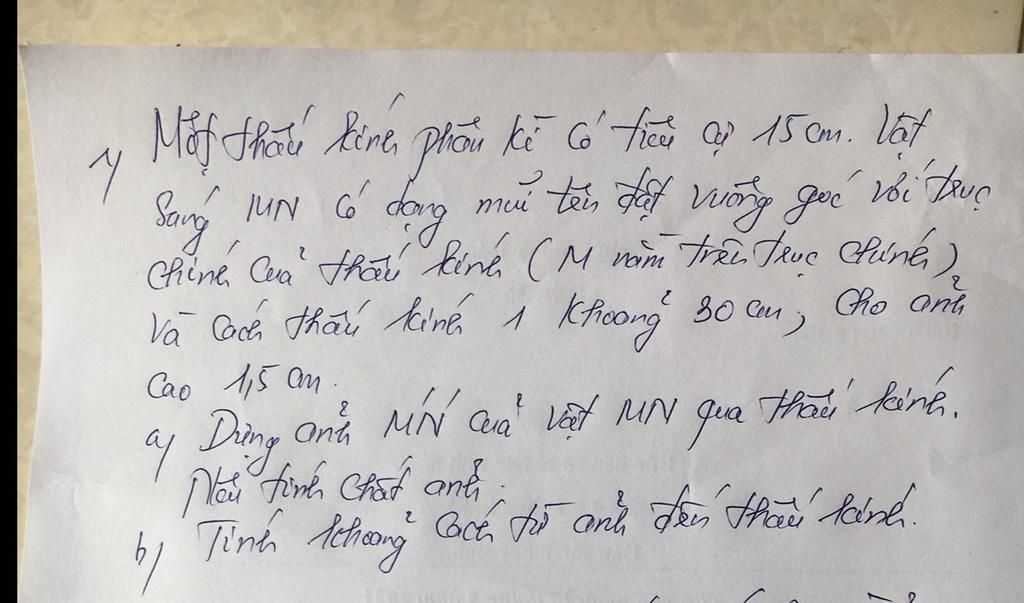 1) Một thấu kính phân kì có tiêu cự 15 cm. Vật
sáng MN có dạng mũi tên đặt vuông góc với trục
chính của thấu kính (M nằm trên trục chính)
và cách thấu kính 1 khoảng 30 cm, cho ảnh
cao 1,5 cm.
a) Dựng ảnh M'N' của vật MN qua thấu kính.
Nêu tính chất ảnh.
b) Tính khoảng cách từ ảnh đến thấu kính.